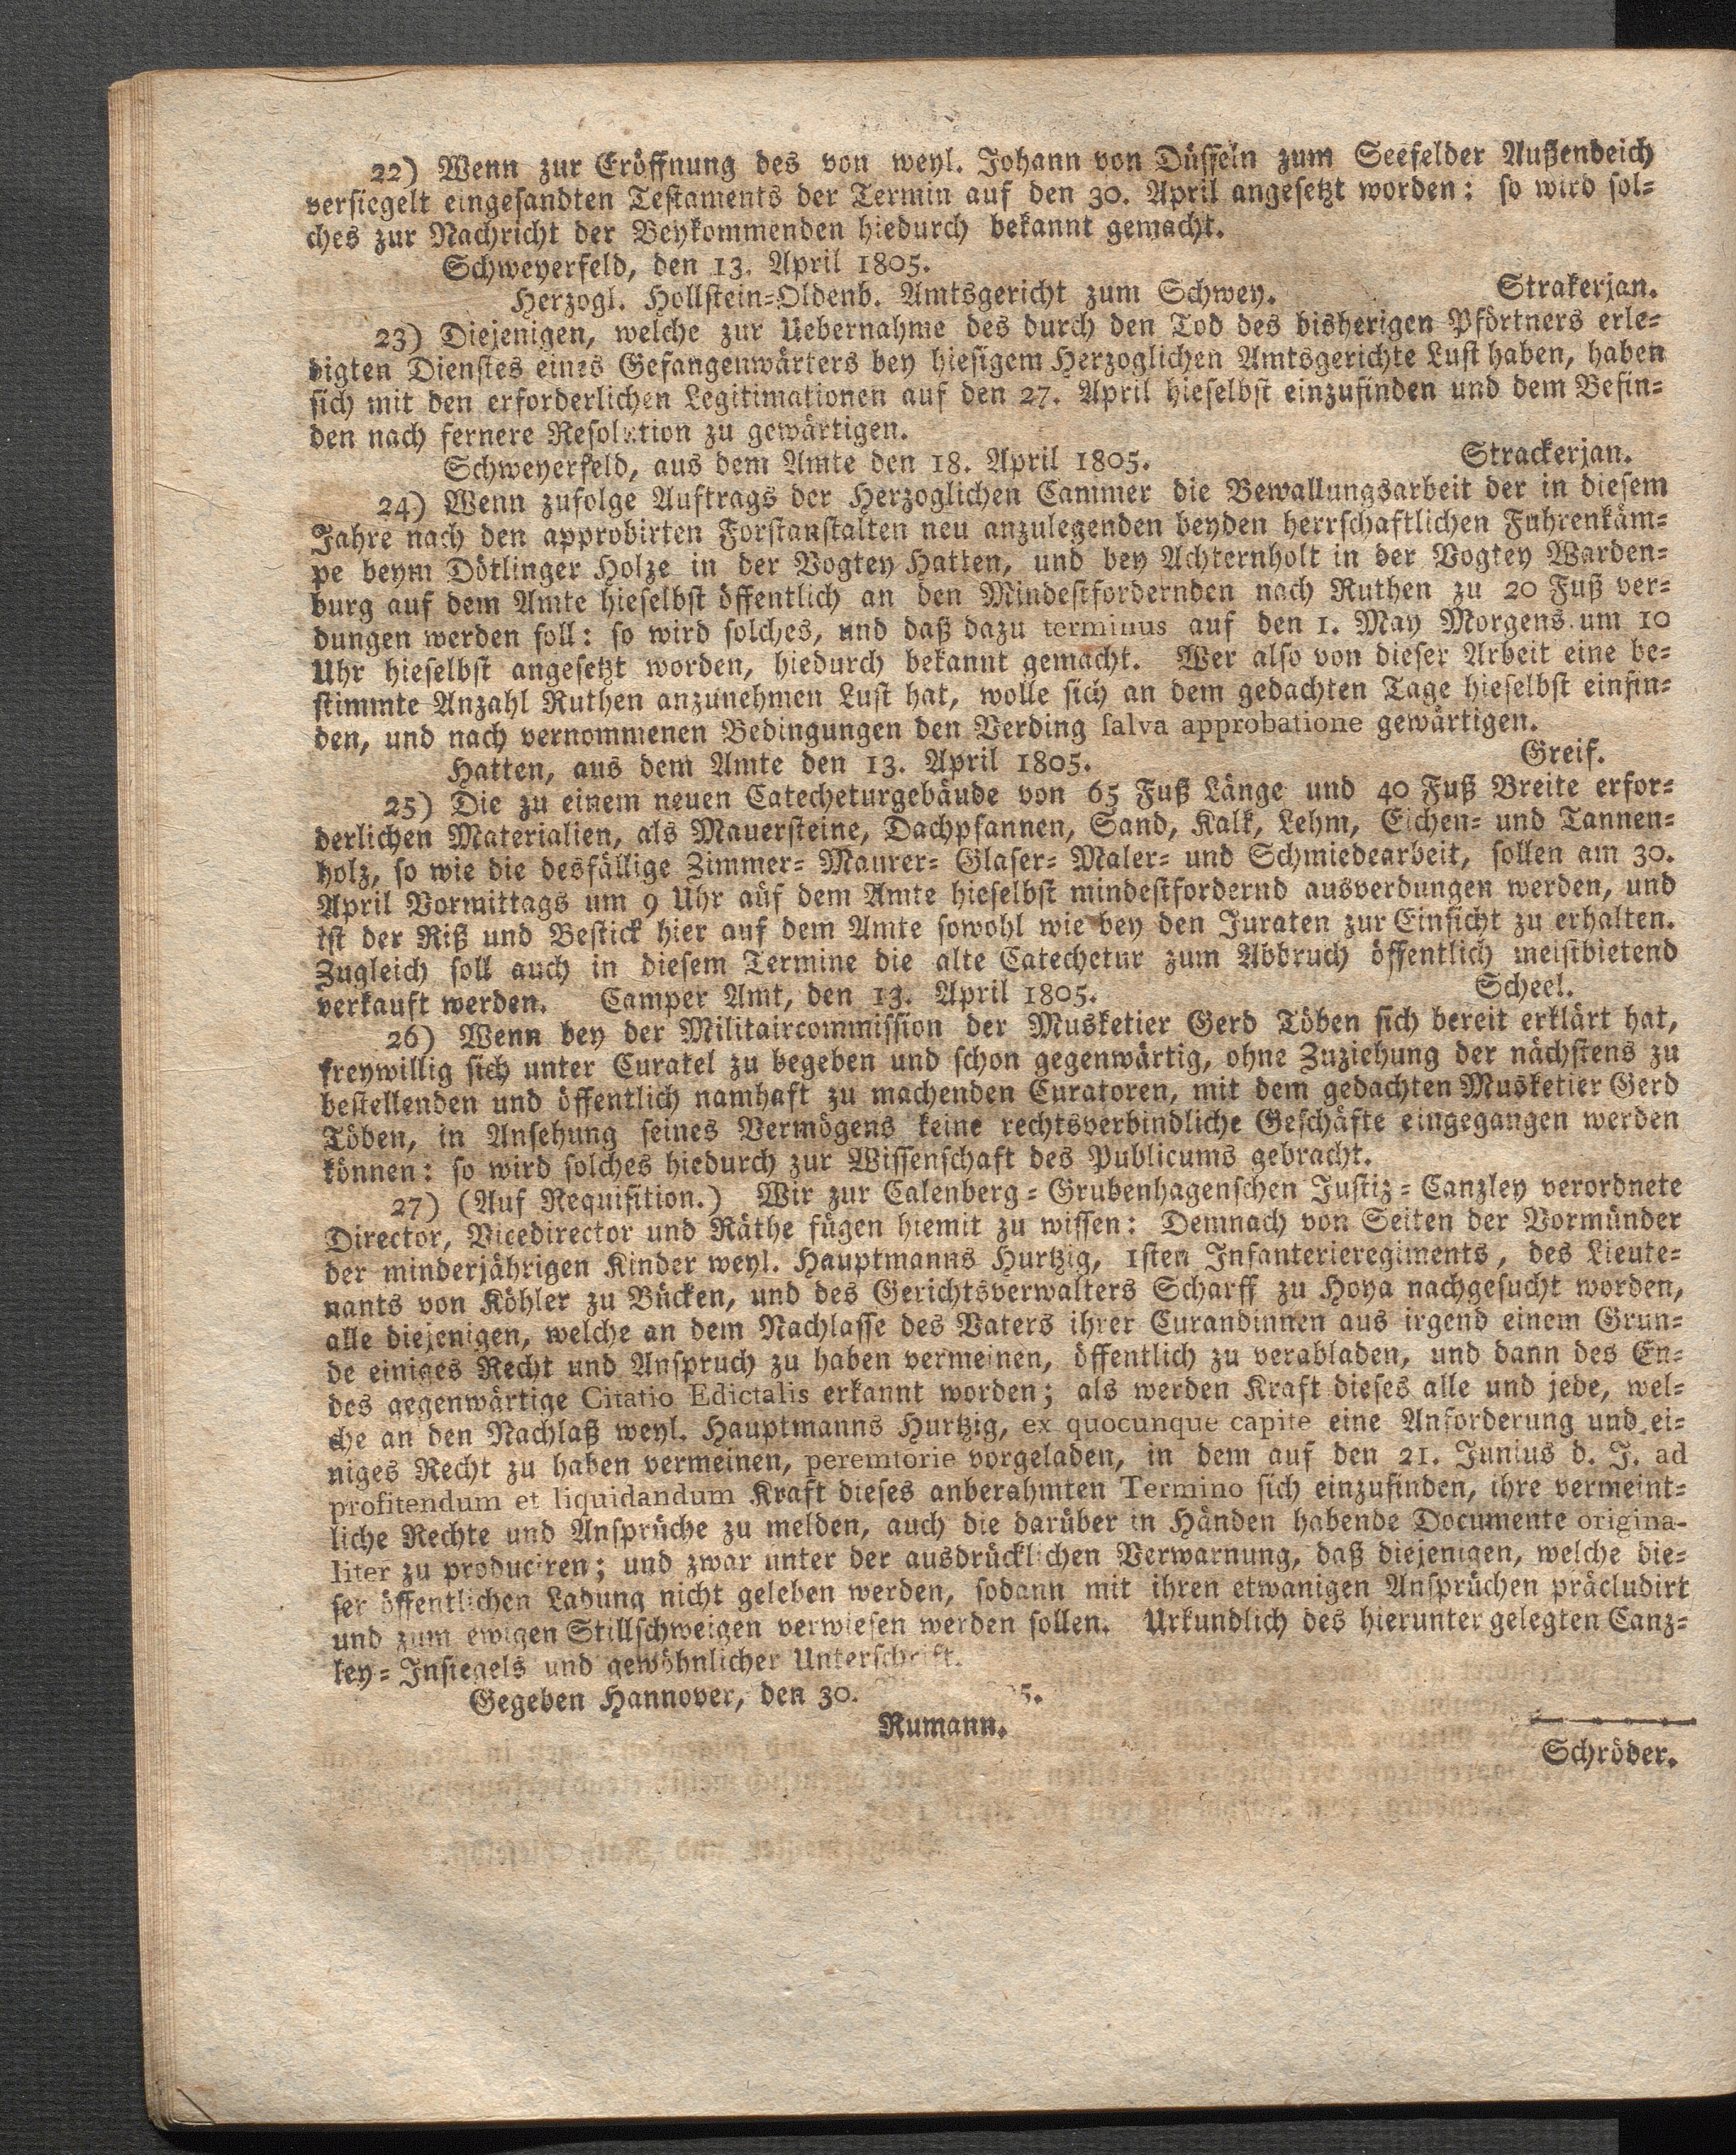 22) Wenn zur Eröffnung des von weyl. Johann von Düsseln zum Seefelder Außendeich
versiegelt eingesandten Testaments der Termin auf den 30. April angesetzt worden: so wird sol-
ches zur Nachricht der Beykommenden hiedurch bekannt gemacht.
Schweyerfeld, den 13. April 1805.
Herzogl. Hollstein-Oldenb. Amtsgericht zum Schwey. Strakerjan.
23) Diejenigen, welche zur Uebernahme des durch den Tod des bisherigen Pförtners erle-
digten Dienstes eines Gefangenwärters bey hiesigem Herzoglichen Amtsgerichte Lust haben, haben
sich mit den erforderlichen Legitimationen auf den 27. April hieselbst einzufinden und dem Befin-
den nach fernere Resolution zu gewärtigen.
Schweyerfeld, aus dem Amte den 18. April 1805. Strackerjan.
24) Wenn zufolge Auftrags der Herzoglichen Cammer die Bewallungsarbeit der in diesem
Jahre nach den approbirten Forstanstalten neu anzulegenden beyden herrschaftlichen Fuhrenkäm-
pe beym Dötlinger Holze in der Vogtey Hatten, und bey Achternholt in der Vogtey Warden-
burg auf dem Amte hieselbst öffentlich an den Mindestfordernden nach Ruthen zu 20 Fuß ver-
dungen werden soll: so wird solches, und daß dazu terminus auf den 1. May Morgens um 10
Uhr hieselbst angesetzt worden, hiedurch bekannt gemacht. Wer also von dieser Arbeit eine be-
stimmte Anzahl Ruthen anzunehmen Lust hat, wolle sich an dem gedachten Tage hieselbst einfin-
den, und nach vernommenen Bedingungen den Verding salva approbatione gewärtigen.
Hatten, aus dem Amte den 13. April 1805. Greif.
25) Die zu einem neuen Catecheturgebäude von 65 Fuß Länge und 40 Fuß Breite erfor-
derlichen Materialien, als Mauersteine, Dachpfannen, Sand, Kalk, Lehm, Eichen- und Tannen-
holz, so wie die desfällige Zimmer- Maurer- Glaser- Maler- und Schmiedearbeit, sollen am 30.
April Vormittags um 9 Uhr auf dem Amte hieselbst mindestfordernd ausverdungen werden, und
ist der Riß und Bestick hier auf dem Amte sowohl wie bey den Juraten zur Einsicht zu erhalten.
Zugleich soll auch in diesem Termine die alte Catechetur zum Abbruch öffentlich meistbietend
verkauft werden. Camper Amt, den 13. April 1805. Scheel.
26) Wenn bey der Militaircommission der Musketier Gerd Töben sich bereit erklärt hat,
freywillig sich unter Curatel zu begeben und schon gegenwärtig, ohne Zuziehung der nächstens zu
bestellenden und öffentlich namhaft zu machenden Curatoren, mit dem gedachten Musketier Gerd
Töben, in Ansehung seines Vermögens keine rechtsverbindliche Geschäfte eingegangen werden
können: so wird solches hiedurch zur Wissenschaft des Publicums gebracht.
27) (Auf Requisition.) Wir zur Calenberg-Grubenhagenschen Justiz-Canzley verordnete
Director, Vicedirector und Räthe fügen hiemit zu wissen: Demnach von Seiten der Vormünder
der minderjährigen Kinder weyl. Hauptmanns Hurtzig, 1sten Infanterieregiments, des Lieute-
nants von Köhler zu Bücken, und des Gerichtsverwalters Scharff zu Hoya nachgesucht worden,
alle diejenigen, welche an dem Nachlasse des Vaters ihrer Curandinnen aus irgend einem Grun-
de einiges Recht und Anspruch zu haben vermeinen, öffentlich zu verabladen, und dann des En-
des gegenwärtige Citatio Edictalis erkannt worden; als werden Kraft dieses alle und jede, wel-
che an den Nachlaß weyl. Hauptmanns Hurtzig, ex quocunque capite eine Anforderung und ei-
niges Recht zu haben vermeinen, peremtorie vorgeladen, in dem auf den 21. Junius d. J. ad
profitendum et liquidandum Kraft dieses anberahmten Termino sich einzufinden, ihre vermeint-
liche Rechte und Ansprüche zu melden, auch die darüber in Händen habende Documente origina-
liter zu produciren; und zwar unter der ausdrücklichen Verwarnung, daß diejenigen, welche die-
ser öffentlichen Ladung nicht geleben werden, sodann mit ihren etwanigen Ansprüchen präcludirt
und zum ewigen Stillschweigen verwiesen werden sollen. Urkundlich des hierunter gelegten Canz-
ley-Insiegels und gewöhnlicher Unterschrift.
Gegeben Hannover, den 30. 5.
Rumann.
Schröder.